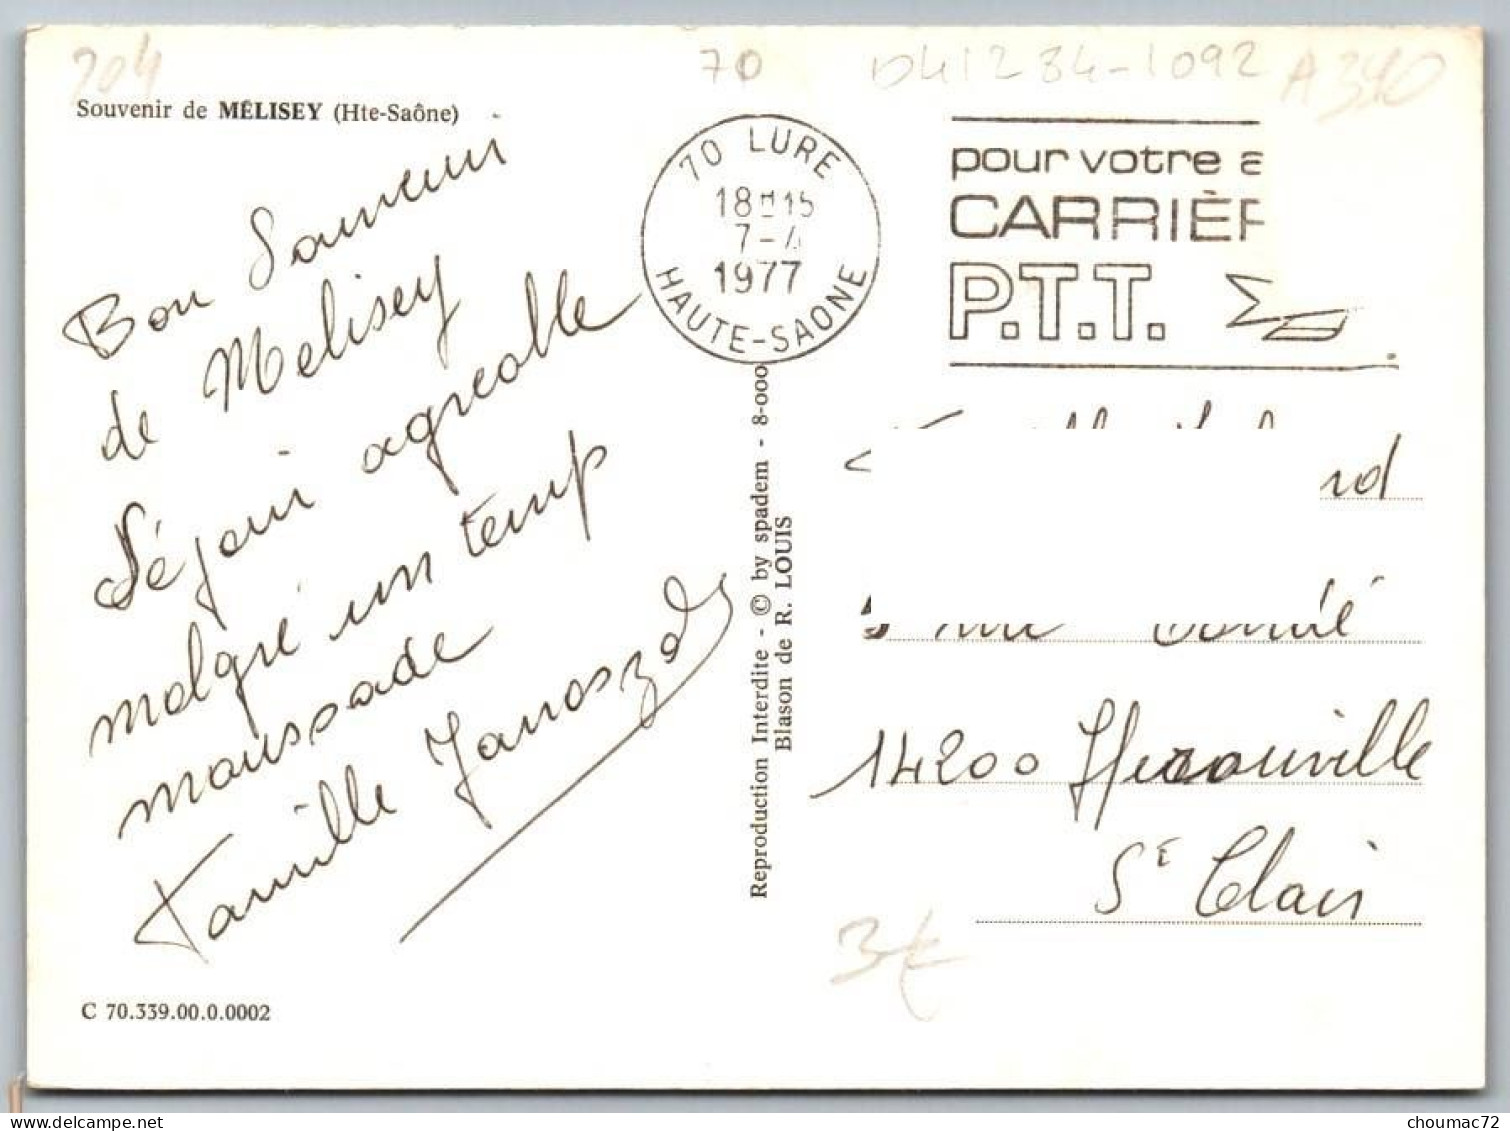 204
70
D41234-1092
A340
Souvenir de MÉLISEY (Hte-Saône)
70 LURE
18H15
7-4
1977
HAUTE-SAONE
pour votre a
CARRIÈR
P.T.T.
Bon Souvenir
de Melisey
Séjour agréable
malgré un temp
maussade
Famille Janoszak
Reproduction Interdite - © by spadem - 8-000
Blason de R. LOUIS
14200 Herouville
St Clair
3€
C 70.339.00.0.0002
choumac72